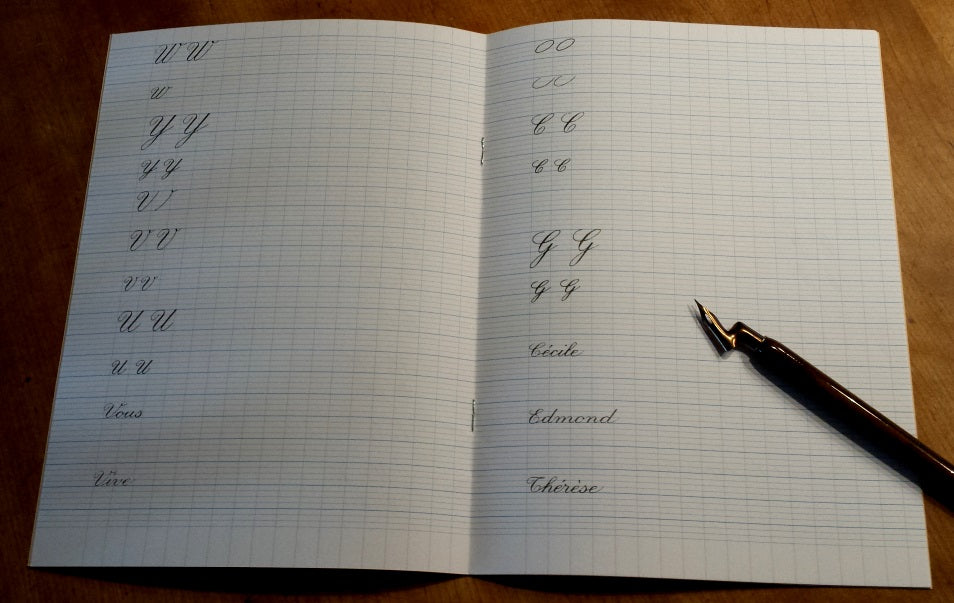 W W
w
Y Y
Y Y
V
V V
V V
U U
U U
Vous
Vive
O O
C C
C C
G G
G G
Cécile
Edmond
Thérèse